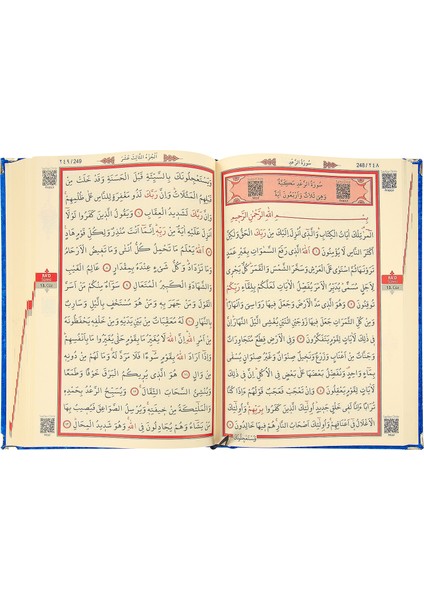 سُورَةُ الرَّعْدِ
248/٢٤٨
سُورَةُ الرَّعْدِ مَكِّيَّةٌ
وَهِيَ ثَلَاثٌ وَأَرْبَعُونَ آيَةً
بِسْمِ اللّٰهِ الرَّحْمٰنِ الرَّحِيمِ
الٓمٓرٰ تِلْكَ اٰيَاتُ الْكِتَابِ وَالَّذِٓي اُنْزِلَ اِلَيْكَ مِنْ رَبِّكَ الْحَقُّ وَلٰكِنَّ
اَكْثَرَ النَّاسِ لَا يُؤْمِنُونَ ﴿١﴾ اَللّٰهُ الَّذِي رَفَعَ السَّمٰوَاتِ بِغَيْرِ عَمَدٍ
تَرَوْنَهَا ثُمَّ اسْتَوٰى عَلَى الْعَرْشِ وَسَخَّرَ الشَّمْسَ وَالْقَمَرَ كُلٌّ يَجْرِي
لِاَجَلٍ مُسَمًّى يُدَبِّرُ الْاَمْرَ يُفَصِّلُ الْاٰيَاتِ لَعَلَّكُمْ بِلِقَٓاءِ رَبِّكُمْ
تُوقِنُونَ ﴿٢﴾ وَهُوَ الَّذِي مَدَّ الْاَرْضَ وَجَعَلَ فِيهَا رَوَاسِيَ وَاَنْهَارًا
وَمِنْ كُلِّ الثَّمَرَاتِ جَعَلَ فِيهَا زَوْجَيْنِ اثْنَيْنِ يُغْشِي الَّيْلَ النَّهَارَ اِنَّ
فِي ذٰلِكَ لَاٰيَاتٍ لِقَوْمٍ يَتَفَكَّرُونَ ﴿٣﴾ وَفِي الْاَرْضِ قِطَعٌ مُتَجَاوِرَاتٌ
وَجَنَّاتٌ مِنْ اَعْنَابٍ وَزَرْعٌ وَنَخِيلٌ صِنْوَانٌ وَغَيْرُ صِنْوَانٍ يُسْقٰى
بِمَٓاءٍ وَاحِدٍ وَنُفَضِّلُ بَعْضَهَا عَلٰى بَعْضٍ فِي الْاُكُلِ اِنَّ فِي ذٰلِكَ
لَاٰيَاتٍ لِقَوْمٍ يَعْقِلُونَ ﴿٤﴾ وَاِنْ تَعْجَبْ فَعَجَبٌ قَوْلُهُمْ ءَاِذَا كُنَّا
تُرَابًا ءَاِنَّا لَفِي خَلْقٍ جَدِيدٍ اُولٰٓئِكَ الَّذِينَ كَفَرُوا بِرَبِّهِمْ وَاُولٰٓئِكَ
الْاَغْلَالُ فِٓي اَعْنَاقِهِمْ وَاُولٰٓئِكَ اَصْحَابُ النَّارِ هُمْ فِيهَا خَالِدُونَ ﴿٥﴾
13. Cüz
٢٤٩/249
اَلْجُزْءُ الثَّالِثَ عَشَرَ
وَيَسْتَعْجِلُونَكَ بِالسَّيِّئَةِ قَبْلَ الْحَسَنَةِ وَقَدْ خَلَتْ مِنْ
قَبْلِهِمُ الْمَثُلَاتُ وَاِنَّ رَبَّكَ لَذُو مَغْفِرَةٍ لِلنَّاسِ عَلٰى ظُلْمِهِمْ
وَاِنَّ رَبَّكَ لَشَدِيدُ الْعِقَابِ ﴿٦﴾ وَيَقُولُ الَّذِينَ كَفَرُوا لَوْلَٓا
اُنْزِلَ عَلَيْهِ اٰيَةٌ مِنْ رَبِّهِ اِنَّمَٓا اَنْتَ مُنْذِرٌ وَلِكُلِّ قَوْمٍ هَادٍ
﴿٧﴾ اَللّٰهُ يَعْلَمُ مَا تَحْمِلُ كُلُّ اُنْثٰى وَمَا تَغِيضُ الْاَرْحَامُ
وَمَا تَزْدَادُ وَكُلُّ شَيْءٍ عِنْدَهُ بِمِقْدَارٍ ﴿٨﴾ عَالِمُ الْغَيْبِ
وَالشَّهَادَةِ الْكَبِيرُ الْمُتَعَالِ ﴿٩﴾ سَوَٓاءٌ مِنْكُمْ مَنْ اَسَرَّ
الْقَوْلَ وَمَنْ جَهَرَ بِهِ وَمَنْ هُوَ مُسْتَخْفٍ بِالَّيْلِ وَسَارِبٌ
بِالنَّهَارِ ﴿١٠﴾ لَهُ مُعَقِّبَاتٌ مِنْ بَيْنِ يَدَيْهِ وَمِنْ خَلْفِهِ يَحْفَظُونَهُ
مِنْ اَمْرِ اللّٰهِ اِنَّ اللّٰهَ لَا يُغَيِّرُ مَا بِقَوْمٍ حَتّٰى يُغَيِّرُوا مَا بِاَنْفُسِهِمْ
وَاِذَٓا اَرَادَ اللّٰهُ بِقَوْمٍ سُٓوءًا فَلَا مَرَدَّ لَهُ وَمَا لَهُمْ مِنْ دُونِهِ
مِنْ وَالٍ ﴿١١﴾ هُوَ الَّذِي يُرِيكُمُ الْبَرْقَ خَوْفًا وَطَمَعًا
وَيُنْشِئُ السَّحَابَ الثِّقَالَ ﴿١٢﴾ وَيُسَبِّحُ الرَّعْدُ بِحَمْدِهِ
وَالْمَلٰٓئِكَةُ مِنْ خِيفَتِهِ وَيُرْسِلُ الصَّوَاعِقَ فَيُصِيبُ بِهَا
مَنْ يَشَٓاءُ وَهُمْ يُجَادِلُونَ فِي اللّٰهِ وَهُوَ شَدِيدُ الْمِحَالِ ﴿١٣﴾
13. Cüz